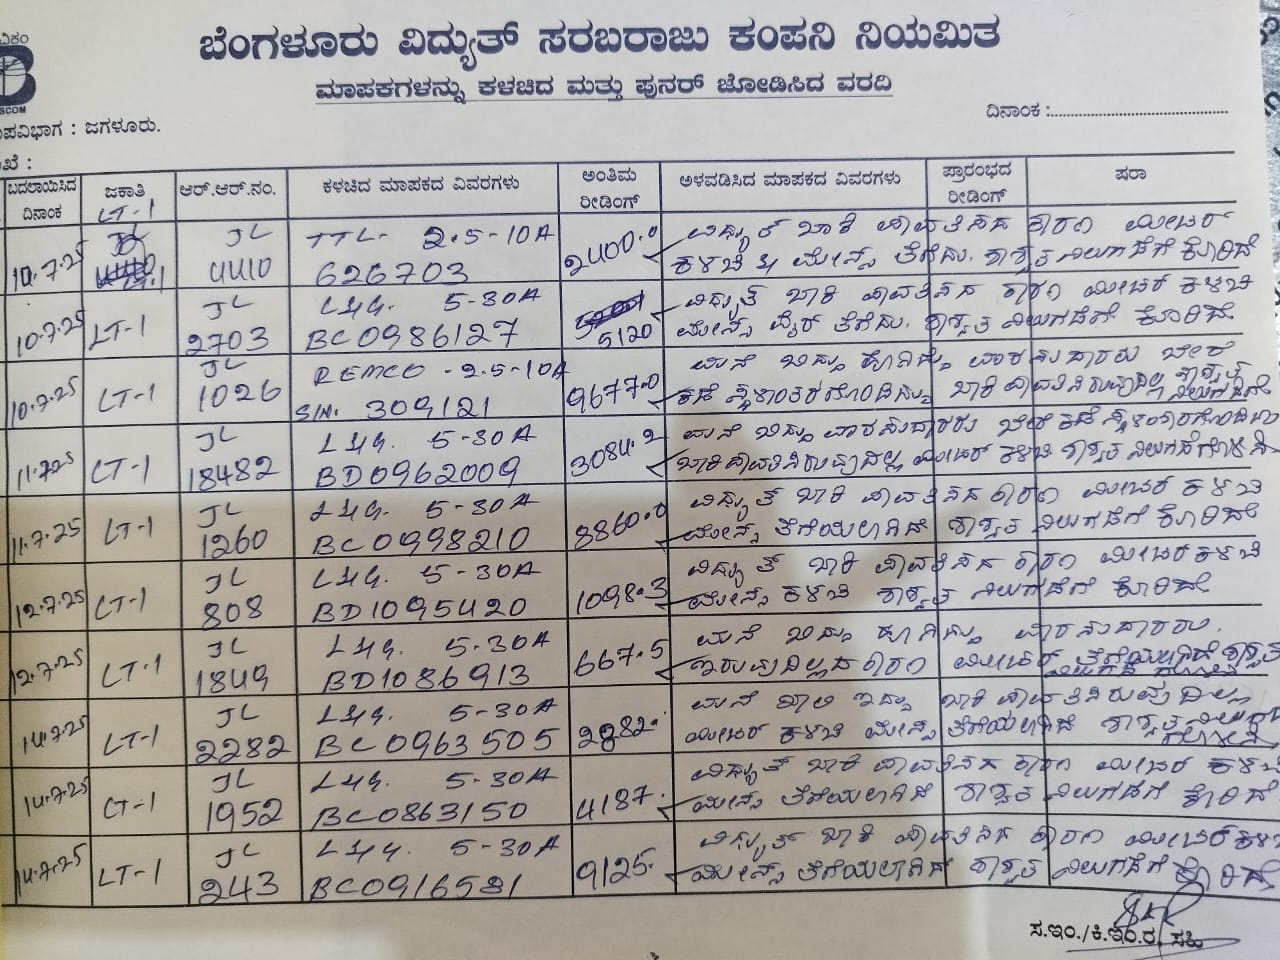 ಬೆಂಗಳೂರು ವಿದ್ಯುತ್ ಸರಬರಾಜು ಕಂಪನಿ ನಿಯಮಿತ
ಮಾಪಕಗಳನ್ನು ಕಳಚಿದ ಮತ್ತು ಪುನರ್ ಜೋಡಿಸಿದ ವರದಿ
ದಿನಾಂಕ :
ಉಪವಿಭಾಗ : ಜಗಳೂರು.
ಬದಲಾಯಿಸಿದ ದಿನಾಂಕ ಜಕಾತಿ ಆರ್.ಆರ್.ನಂ. ಕಳಚಿದ ಮಾಪಕದ ವಿವರಗಳು ಅಂತಿಮ ರೀಡಿಂಗ್ ಅಳವಡಿಸಿದ ಮಾಪಕದ ವಿವರಗಳು ಪ್ರಾರಂಭದ ರೀಡಿಂಗ್ ಷರಾ
LT-1 JL TTL- 2.5-10A ವಿದ್ಯುತ್ ಬಾಕಿ ಪಾವತಿಸದ ಕಾರಣ ಮೀಟರ್
10.7.25 4410 626703 2400.0 ಕಳಚಿ ಮೇನ್ಸ್ ತೆಗೆದು. ಶಾಶ್ವತ ನಿಲುಗಡೆಗೆ ಕೋರಿದೆ
JL L&G. 5-30A ವಿದ್ಯುತ್ ಬಾಕಿ ಪಾವತಿಸದ ಕಾರಣ ಮೀಟರ್ ಕಳಚಿ
10.7.25 LT-1 2703 BC0986127 5120 ಮೇನ್ಸ್ ವೈರ್ ತೆಗೆದು. ಶಾಶ್ವತ ನಿಲುಗಡೆಗೆ ಕೋರಿದೆ
JL REMCO - 2.5-10A ಮನೆ ಬಿದ್ದು ಹೋಗಿದ್ದು ವಾರಸುದಾರರು ಬೇರೆ
10.7.25 LT-1 1026 S/N. 309121 9677.0 ಕಡೆ ಸ್ಥಳಾಂತರಗೊಂಡಿದ್ದು ಬಾಕಿ ಪಾವತಿಸಿರುವುದಿಲ್ಲ ಶಾಶ್ವತ ನಿಲುಗಡೆಗೆ
JL L&G. 5-30A ಮನೆ ಬಿದ್ದು ವಾರಸುದಾರರು ಬೇರೆ ಕಡೆ ಸ್ಥಳಾಂತರಗೊಂಡಿದ್ದು
11.7.25 LT-1 18482 BD0962009 3084.2 ಬಾಕಿ ಪಾವತಿಸಿರುವುದಿಲ್ಲ ಮೀಟರ್ ಕಳಚಿ ಶಾಶ್ವತ ನಿಲುಗಡೆಗೆ
JL L&G. 5-30A ವಿದ್ಯುತ್ ಬಾಕಿ ಪಾವತಿಸದ ಕಾರಣ ಮೀಟರ್ ಕಳಚಿ
11.7.25 LT-1 1260 BC0998210 8860.0 ಮೇನ್ಸ್ ತೆಗೆಯಲಾಗಿದೆ ಶಾಶ್ವತ ನಿಲುಗಡೆಗೆ ಕೋರಿದೆ
JL L&G. 5-30A ವಿದ್ಯುತ್ ಬಾಕಿ ಪಾವತಿಸದ ಕಾರಣ ಮೀಟರ ಕಳಚಿ
12.7.25 LT-1 808 BD1095420 1098.3 ಮೇನ್ಸ್ ಕಳಚಿ ಶಾಶ್ವತ ನಿಲುಗಡೆಗೆ ಕೋರಿದೆ
JL L&G. 5-30A ಮನೆ ಬಿದ್ದು ಹೋಗಿದ್ದು ವಾರಸುದಾರರು.
12.7.25 LT-1 1849 BD1086913 667.5 ಇರುವುದಿಲ್ಲದ ಕಾರಣ ಮೀಟರ್ ತೆಗೆಯಲಾಗಿದೆ ಶಾಶ್ವತ
JL L&G. 5-30A ಮನೆ ಖಾಲಿ ಇದ್ದು ಬಾಕಿ ಪಾವತಿಸಿರುವುದಿಲ್ಲ
14.7.25 LT-1 2282 BC0963505 2882. ಮೀಟರ್ ಕಳಚಿ ಮೇನ್ಸ್ ತೆಗೆಯಲಾಗಿದೆ ಶಾಶ್ವತ
JL L&G. 5-30A ವಿದ್ಯುತ್ ಬಾಕಿ ಪಾವತಿಸದ ಕಾರಣ ಮೀಟರ ಕಳಚಿ
14.7.25 LT-1 1952 BC0863150 4187. ಮೇನ್ಸ್ ತೆಗೆಯಲಾಗಿದೆ ಶಾಶ್ವತ ನಿಲುಗಡೆಗೆ ಕೋರಿದೆ
JL L&G. 5-30A ವಿದ್ಯುತ್ ಬಾಕಿ ಪಾವತಿಸದ ಕಾರಣ ಮೀಟರ್ ಕಳಚಿ
14.7.25 LT-1 243 BC0916531 9125. ಮೇನ್ಸ್ ತೆಗೆಯಲಾಗಿದೆ ಶಾಶ್ವತ ನಿಲುಗಡೆಗೆ ಕೋರಿದೆ
ಸ.ಇಂ./ಕಿ.ಇಂ.ರ. ಸಹಿ